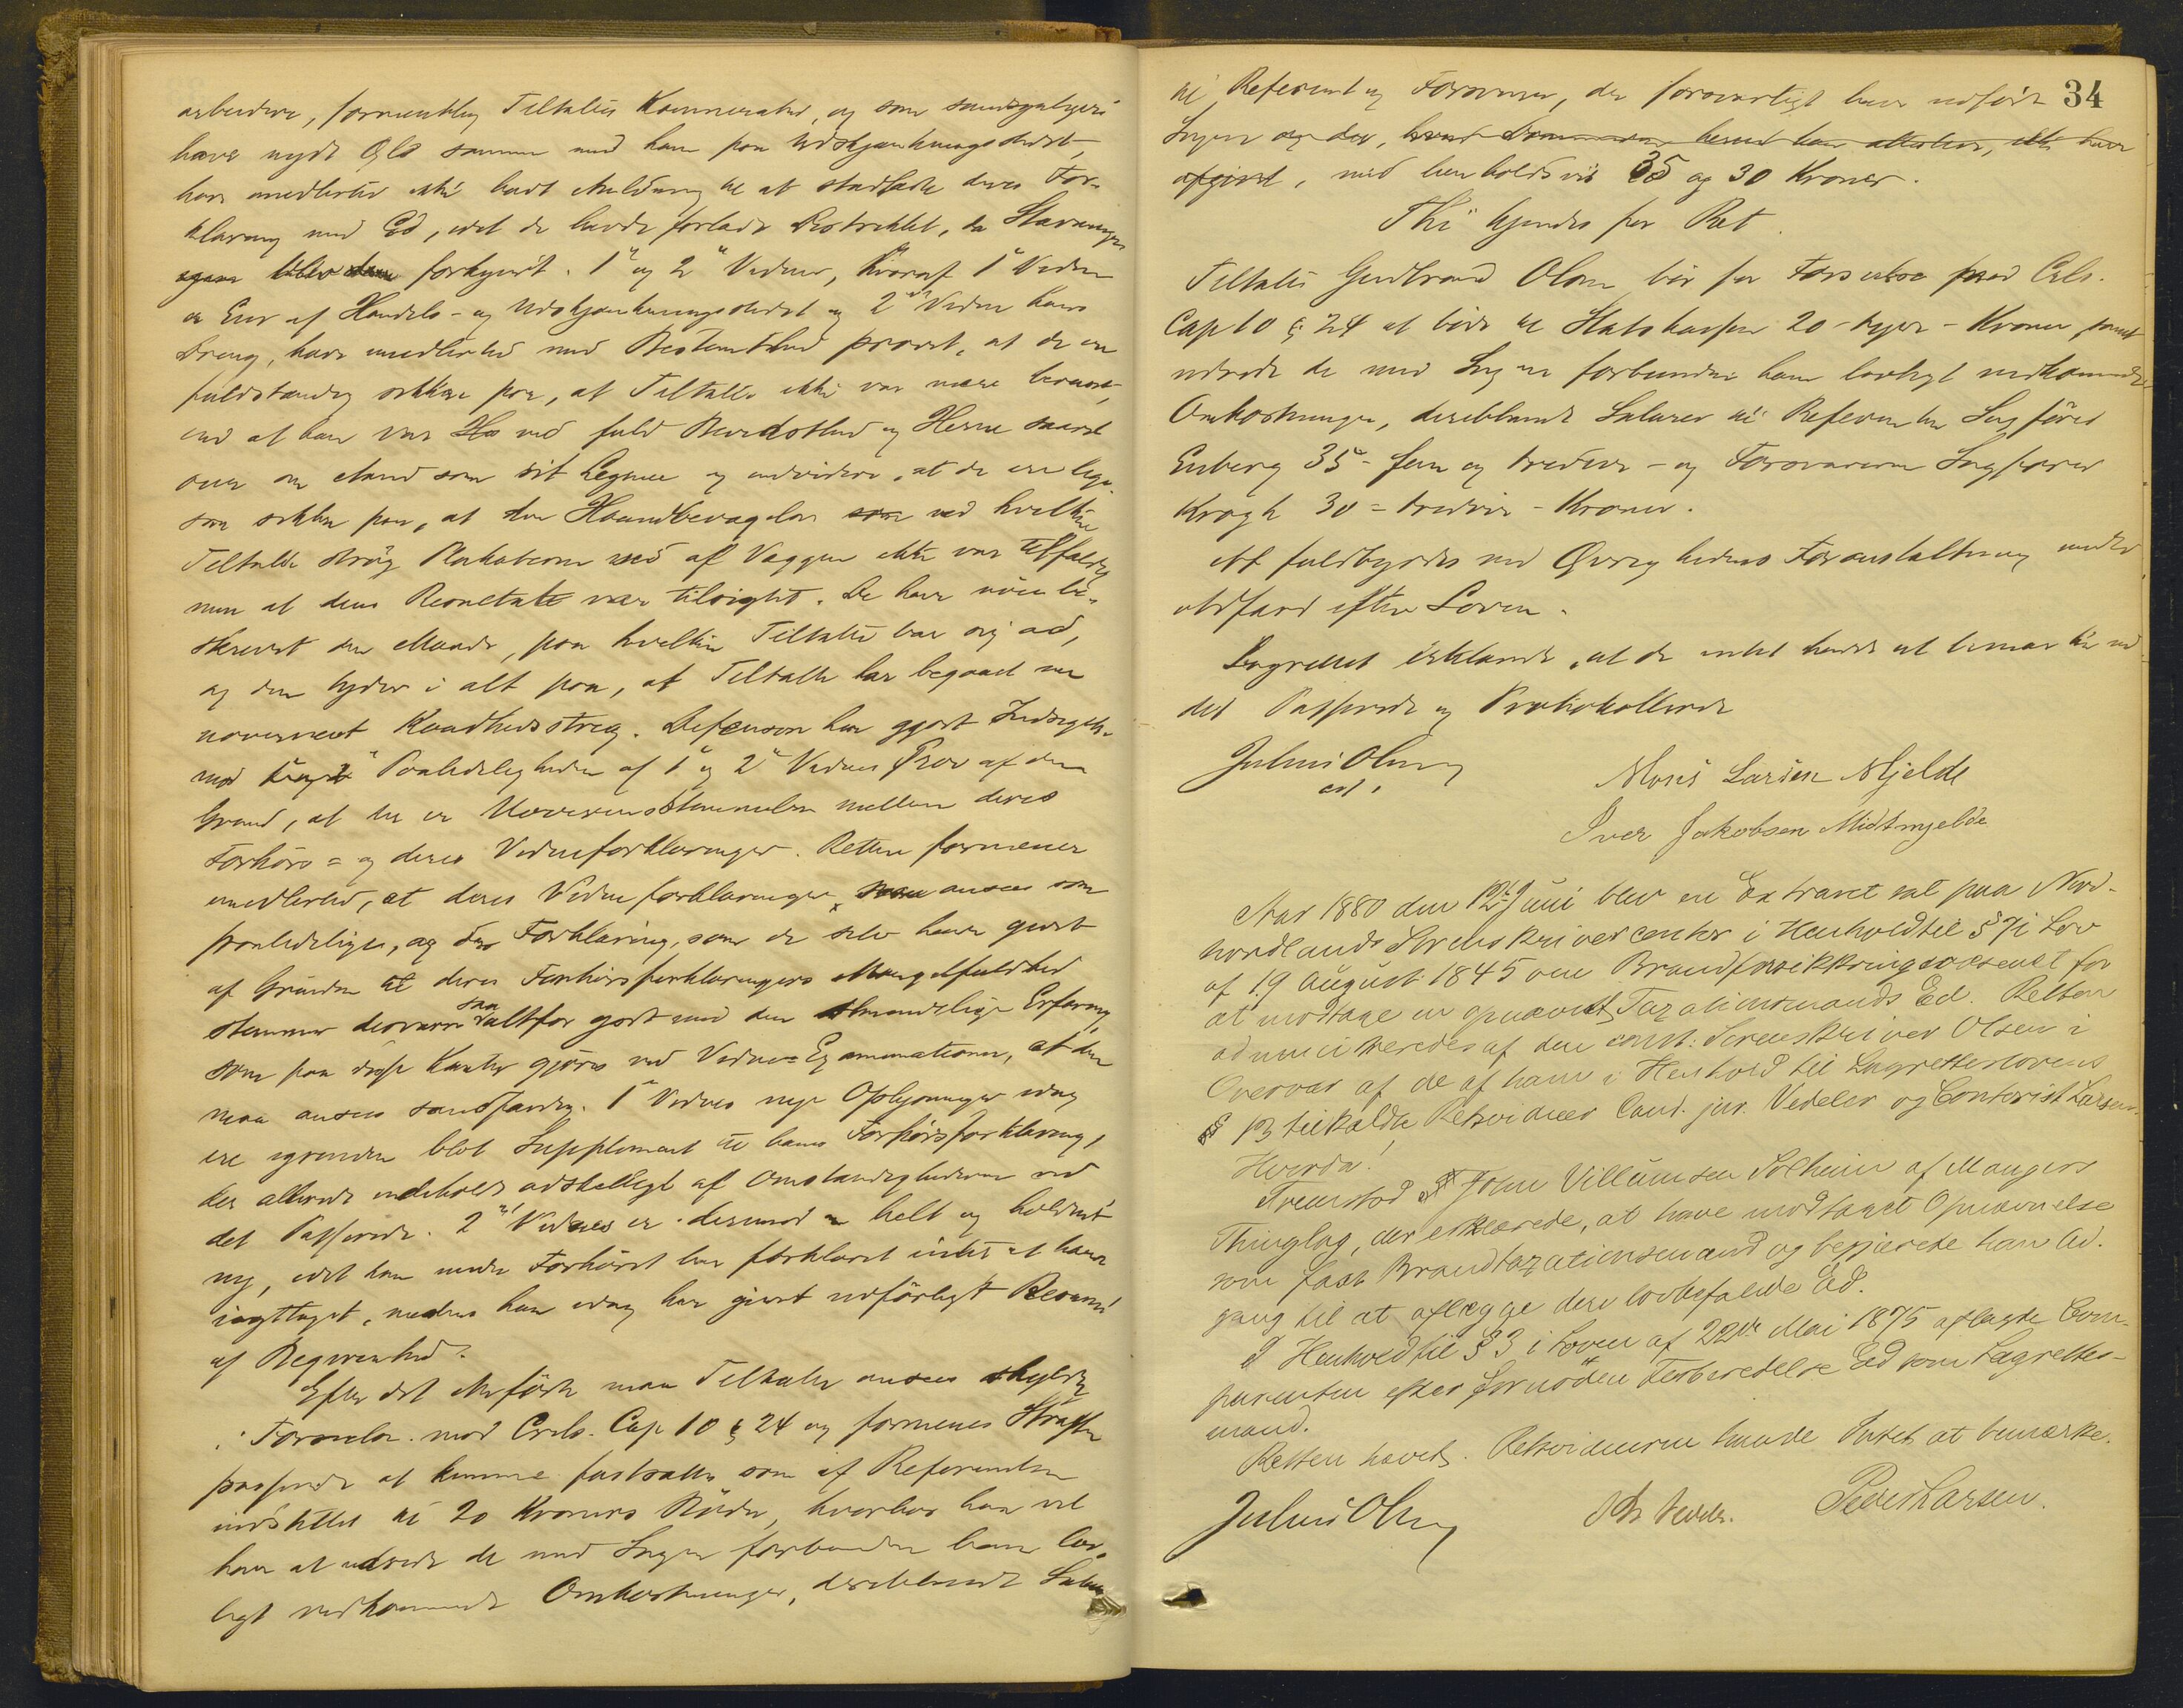 arbeidere, formentlig Tiltaltes Kammerater, og som sandsynligvis
have nydt Øls sammen med ham paa Udskjænkningsstedet,
have imidlertid ikke havt Anledning til at stadfæste deres For-
klaring med Ed, idet de havde forladt Distriktet, da Stævningen
forkyndt. 1ste og 2det Vidne, hvoraf 1ste Vidne
er Eier af Handels- og Udskjænkningsstedet og 2det Vidne hans
Dreng, have imidlertid med Bestemthed provet, at de ere
fuldstændig sikkre paa, at Tiltalte ikke var mere beruset,
end at han var ved fuld Bevidsthed og Herre saavel
over sin Aand som sit Legeme og endvidere, at de ere lige-
saa sikkre paa, at den Haandbevægelse ved hvilken
Tiltalte strøg Plakaterne ned af Væggen ikke var tilfældig
men at dens Resultat var tilsigtet. De have nøie be-
skrevet den Maade, paa hvilken Tiltalte bar sig ad,
og den tyder i alt paa, at Tiltalte har begaaet en
Kaadhedsstreg. Defensor har gjort Indsigelse
mod Paalideligheden af 1ste og 2det Vidnes Prov af den
Grund, at der er Uoverensstemmelse mellem deres
Forhørs- og deres Vidneforklaringer. Retten formener
imidlertid, at deres Vidneforklaringer maa ansees som
paalidelige, og den Forklaring, som de selv have givet
af Grunden til deres Forhørsforklaringers Mangelfuldhed
stemmer desværre saa altfor godt med den almindelige Erfaring,
som paa disse Kanter gjøres ved Vidne-Examinationer, at den
maa ansees sandfærdig. 1ste Vidnes nye Oplysninger idag
ere igrunden blot Supplement til hans Forhørsforklaring,
der allerede indeholdt adskilligt af Omstændighederne ved
det Passerede. 2det Vidnes er derimod helt og holdent
ny, idet han under Forhøret har forklaret intet at have
iagttaget, medens han idag har givet udførligt Resumé
af Begivenhed.
Efter det Anførte maa Tiltalte ansees skyldig
i Forseelse mod Crls. Cap 10 § 24 og formenes Straffen
passende at kunne fastsættes som af Referenten
indstillet til 20 Kroners Bøder, hvorhos han vil
have at udrede de med Sagen forbundne ham lov-
ligt vedkommende Omkostninger, deriblandt Salær
34
til Referent og Forsvarer, der forsvarligt have udført
Sagen og
afgivet, med henholdsvis 35 og 30 Kroner.
Thi kjendes for Ret
Tiltalte Gudbrand Olsen bør for Forseelse mod Crls.
Cap 10 § 24 at bøde til Statskassen 20 - tyve - Kroner samt
udrede de med Sagen forbundne ham lovligt vedkommende
Omkostninger, deriblandt Salærer til Referenten Sagfører
Enberg 35 - fem og tredive - og Forsvareren Sagfører
Krogh 30 = tredive - Kroner.
At fuldbyrdes ved Øvrighedens Foranstaltning under
Adfærd efter Loven.
Lagrettet erklærede, at de intet havde at bemærke ved
det Passerede og Protokollerede
Julius Olsen
cst.
Mons Larsen Mjelde
Iver Jakobsen Midtmjelde
Aar 1880 den 12te Juni blev en Extraret sat paa Nord-
hordlands Sorenskrivercontor i Henhold til § 7 i Lov
af 19 August 1845 om Brandforsikkringsvæsenet for
at modtage en opnævnt Taxationsmands Ed. Retten
administreredes af den const. Sorenskriver Olsen i
Overvær af de af ham i Henhold til Lagretteslovens
§ 13 tilkaldte Retsvidner Cand. jur. Vedeler og Contorist Larsen.
Hvorda!
Fremstod John Villumsen Solheim af Mangers
Thinglag, der erklærede, at have modtaget Opnævnelse
som fast Brandtaxationsmand og begjærede han Ad-
gang til at aflægge den lovbefalede Ed.
I Henhold til § 3 i Loven af 22de Mai 1875 aflagde Com-
parenten efter fornøden Forberedelse Ed som Lagrettes-
mand.
Retten hævet. Retsvidnerne havde Intet at bemærke.
Julius Olsen
Vedeler. Peder Larsen.